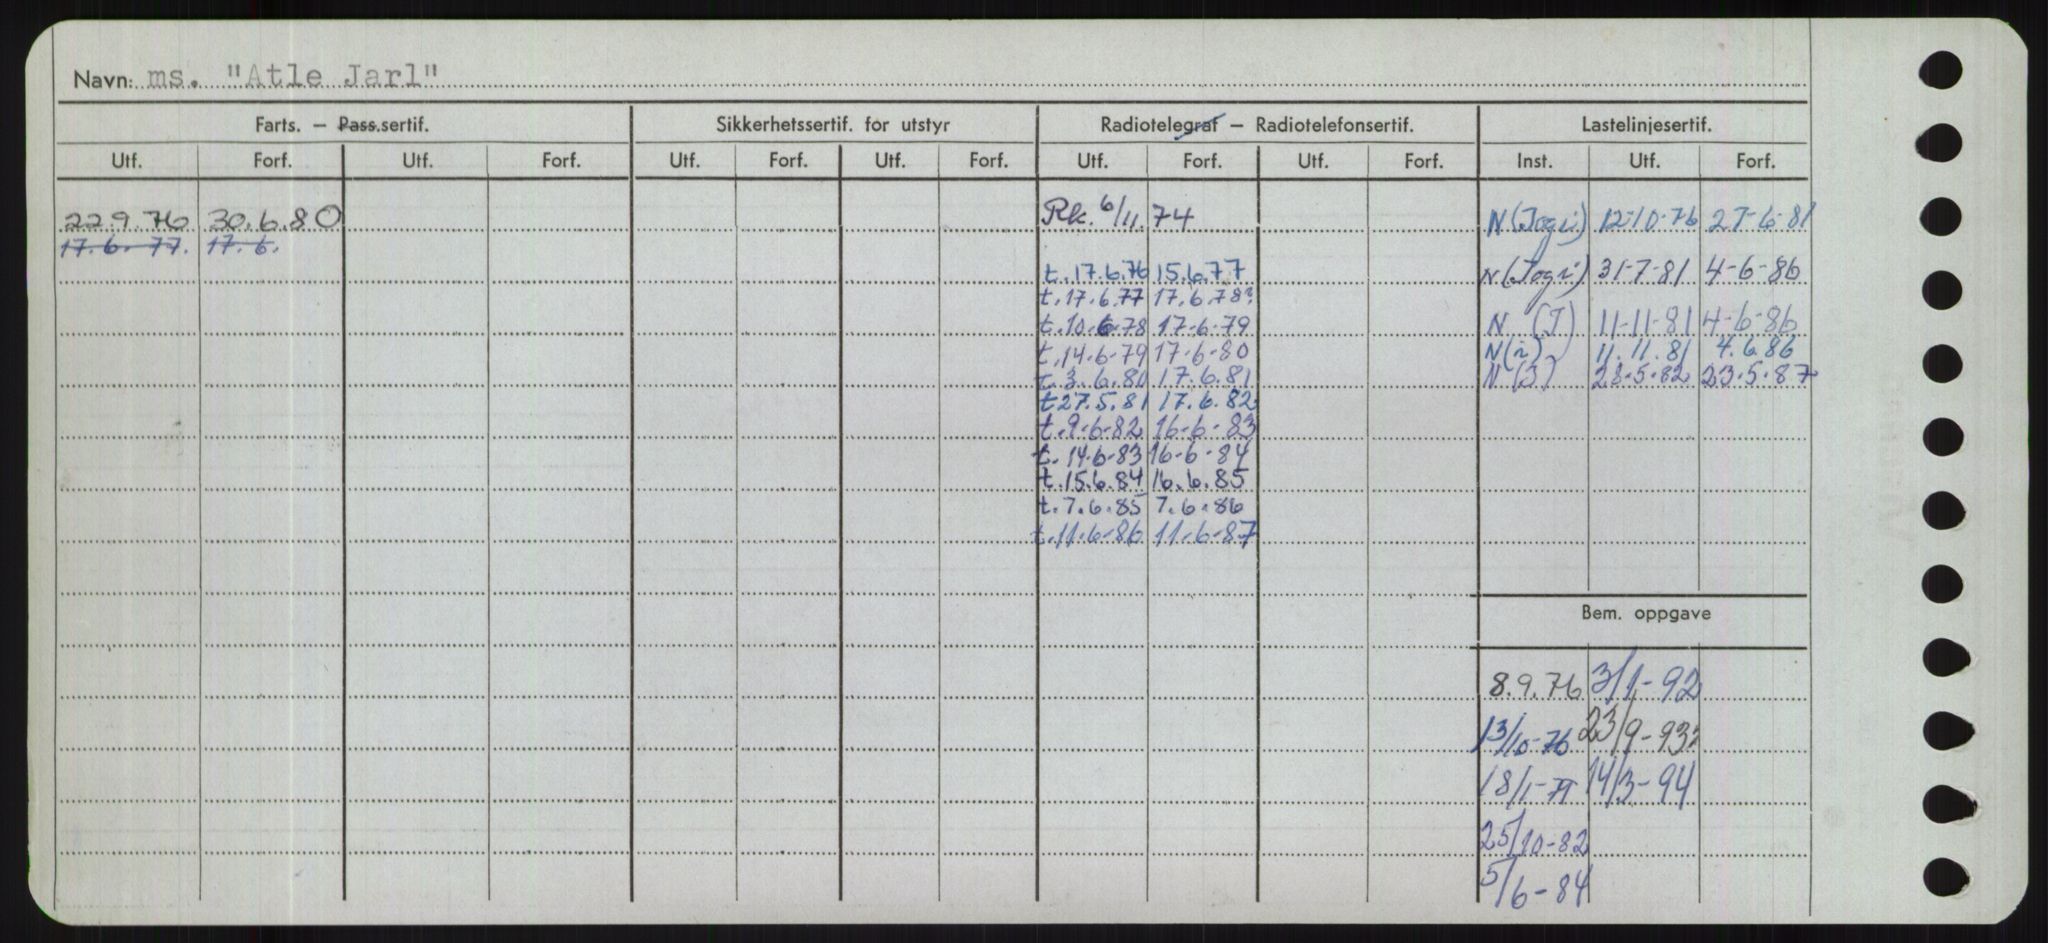 Navn: ms. "Atle Jarl"
Farts. – Pass.sertif. Sikkerhetssertif. for utstyr Radiotelegraf – Radiotelefonsertif. Lastelinjesertif.
Utf. Forf. Utf. Forf. Utf. Forf. Utf. Forf. Utf. Forf. Utf. Forf. Inst. Utf. Forf.
22.9.76 30.6.80 Rk. 6/11.74 N (Jogi) 12-10-76 27-6-81
17.6.77. 17.6.
t.17.6.76 15.6.77 N (Jogi) 31-7-81 4-6-86
t.17.6.77 17.6.78
t.10-6-78 17-6-79 N (J) 11-11-81 4-6-86
t.14-6-79 17-6-80 N (i) 11.11.81 4.6.86
t.3.6.80 17.6.81 N (J) 28.5.82 23.5.87
t27.5.81 17.6.82
t.9-6-82 16-6-83
t.14-6-83 16-6-84
t.15.6.84 16.6.85
t.7.6.85 7.6.86
t.11-6-86 11-6-87
Bem. oppgave
8.9.76 3/1-92
13/10-76 23/9-93
18/1-79 14/3-94
25/10-82
5/6-84